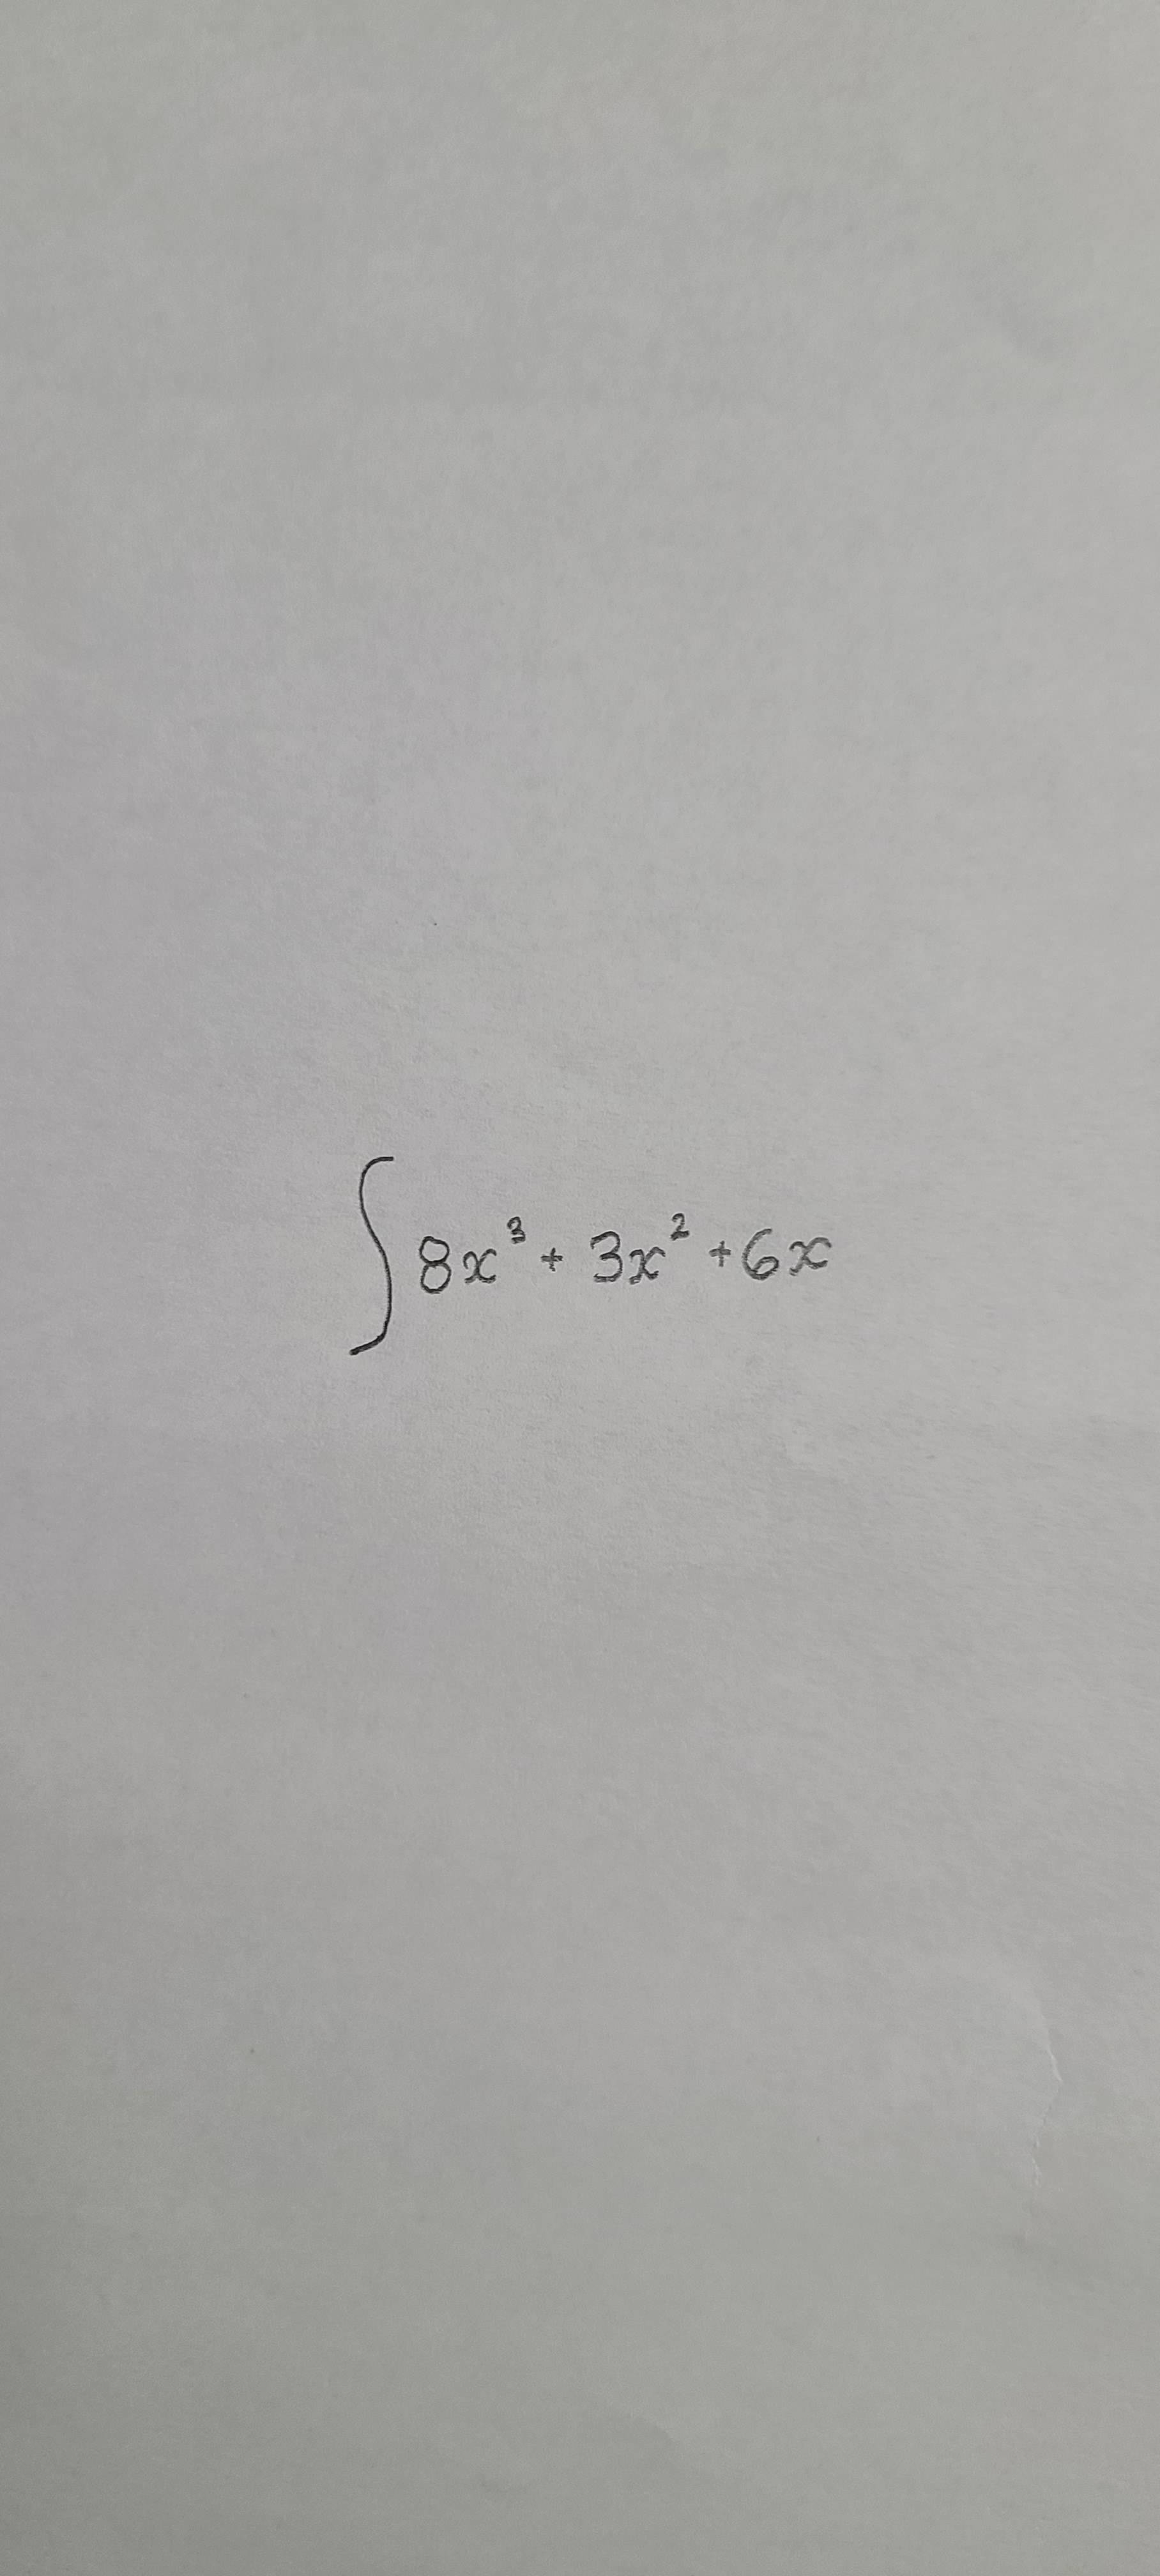 ∫ 8x³ + 3x² + 6x